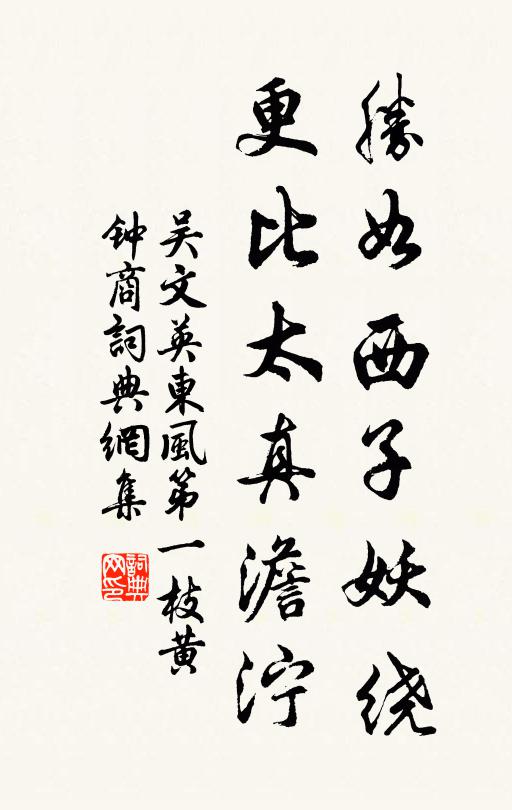 勝如西子妖绕
更比太真澹泞
吴文英東風第一枝黄
钟商詞典網集
詞典网印